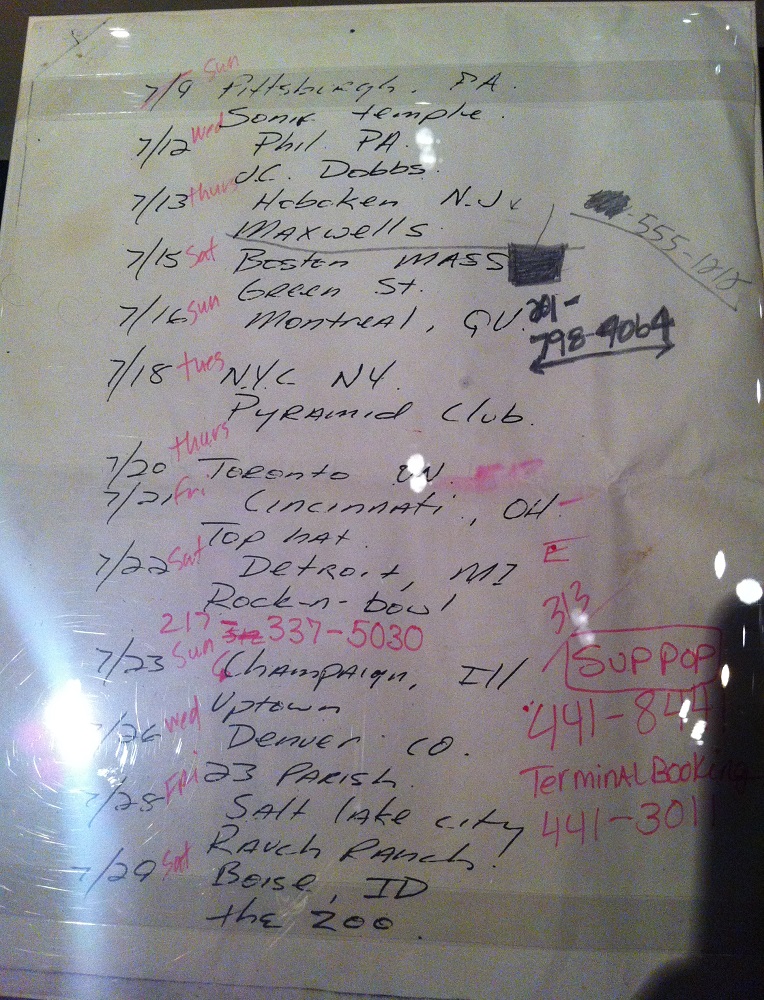 7/9 Sun Pittsburgh, PA.
Sonic temple.
7/12 Wed Phil PA.
J.C. Dobbs.
7/13 thurs Hoboken N.J.
Maxwells
7/15 Sat Boston MASS
Green St.
7/16 sun Montreal, QU.
-555-1212
201-
798-4064
7/18 tues N.Y.C NY.
Pyramid Club.
thurs
7/20 Toronto ON.
7/21 Fri Cincinnati, OH
Top hat.
7/22 Sat Detroit, MI
Rock-n-bowl
313
217- 337-5030
7/23 Sun Champaign, Ill
SUPPOP
Uptown
441-844
7/26 wed Denver CO.
23 PARISH.
Terminal Booking
7/28 FRI Salt lake city
441-301
Rauch Ranch.
7/29 Sat Boise, ID
the Zoo.